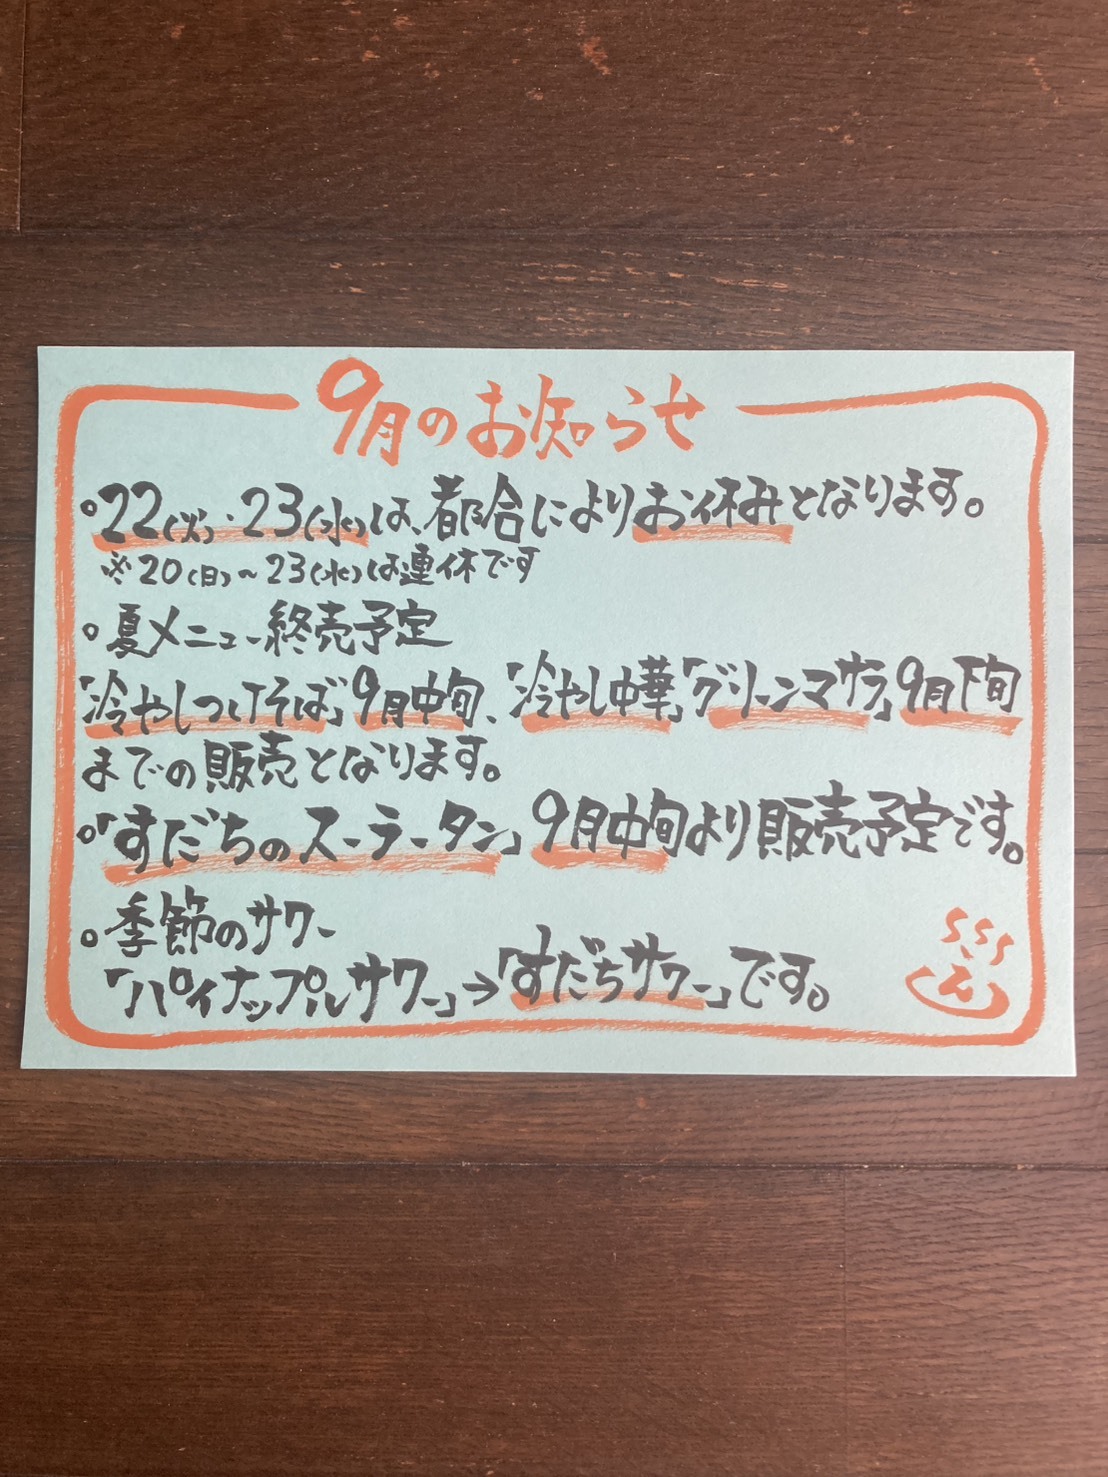 9月のお知らせ
。22(火)・23(水)は、都合によりお休みとなります。
※20(日)～23(水)は連休です
。夏メニュー終売予定
「冷やしつけそば」9月中旬、「冷やし中華」「グリーンマサラ」9月下旬
までの販売となります。
。「すだちのスーラータン」9月中旬より販売予定です。
。季節のサワー
「パイナップルサワー」→「すだちサワー」です。